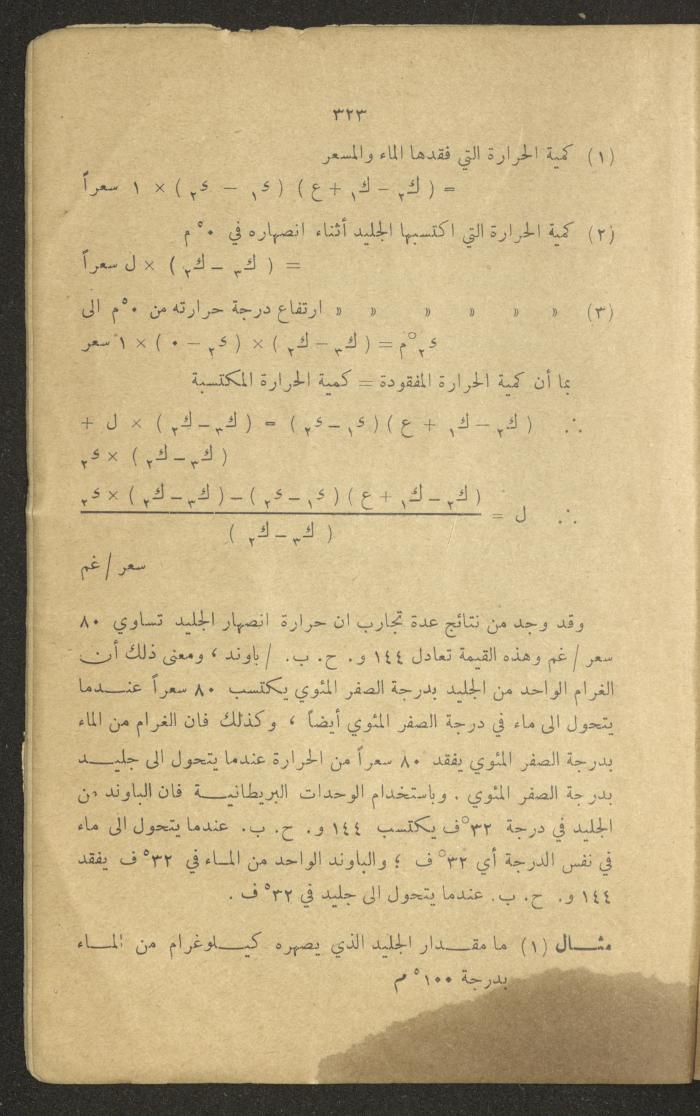 ٣٢٣
(١) كمية الحرارة التي فقدها الماء والمسعر
= ( ك₂ – ك₁ + ع ) ( ى₁ – ى₂ ) × ١ سعراً
(٢) كمية الحرارة التي اكتسبها الجليد أثناء انصهاره في ٠°م
= ( ك₃ – ك₂ ) × ل سعراً
(٣) » » » » » » ارتفاع درجة حرارته من ٠°م الى
ى₂°م = ( ك₃ – ك₂ ) × ( ى₂ – ٠ ) × ١ سعر
بما أن كمية الحرارة المفقودة = كمية الحرارة المكتسبة
∴ ( ك₂ – ك₁ + ع ) ( ى₁ – ى₂ ) = ( ك₃ – ك₂ ) × ل +
( ك₃ – ك₂ ) × ى₂
( ك₂ – ك₁ + ع ) ( ى₁ – ى₂ ) – ( ك₃ – ك₂ ) × ى₂
∴ ل =
( ك₃ – ك₂ )
سعر / غم
وقد وجد من نتائج عدة تجارب ان حرارة انصهار الجليد تساوي ٨٠
سعر / غم وهذه القيمة تعادل ١٤٤ و. ح. ب. / باوند ، ومعنى ذلك أن
الغرام الواحد من الجليد بدرجة الصفر المئوي يكتسب ٨٠ سعراً عندما
يتحول الى ماء في درجة الصفر المئوي أيضاً ، وكذلك فان الغرام من الماء
بدرجة الصفر المئوي يفقد ٨٠ سعراً من الحرارة عندما يتحول الى جليد
بدرجة الصفر المئوي . وباستخدام الوحدات البريطانية فان الباوند من
الجليد في درجة ٣٢°ف يكتسب ١٤٤ و. ح. ب. عندما يتحول الى ماء
في نفس الدرجة أي ٣٢°ف ؛ والباوند الواحد من الماء في ٣٢°ف يفقد
١٤٤ و. ح. ب. عندما يتحول الى جليد في ٣٢°ف .
مثال (١) ما مقدار الجليد الذي يصهره كيلوغرام من الماء
بدرجة ١٠٠°م